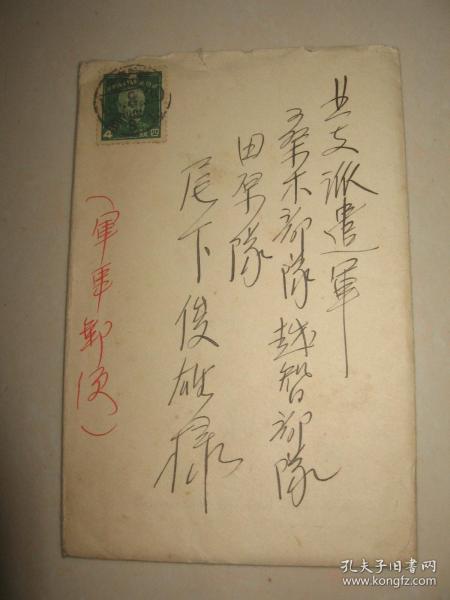 北支派遣軍
桑木部隊越智部隊
田原隊
尾下俊雄様
（軍事郵便）
4
孔夫子旧书网
www.kongfz.com